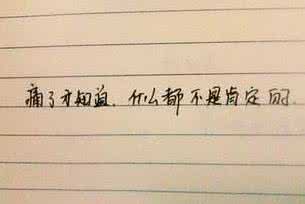 痛了才知道, 什么都不是肯定的.